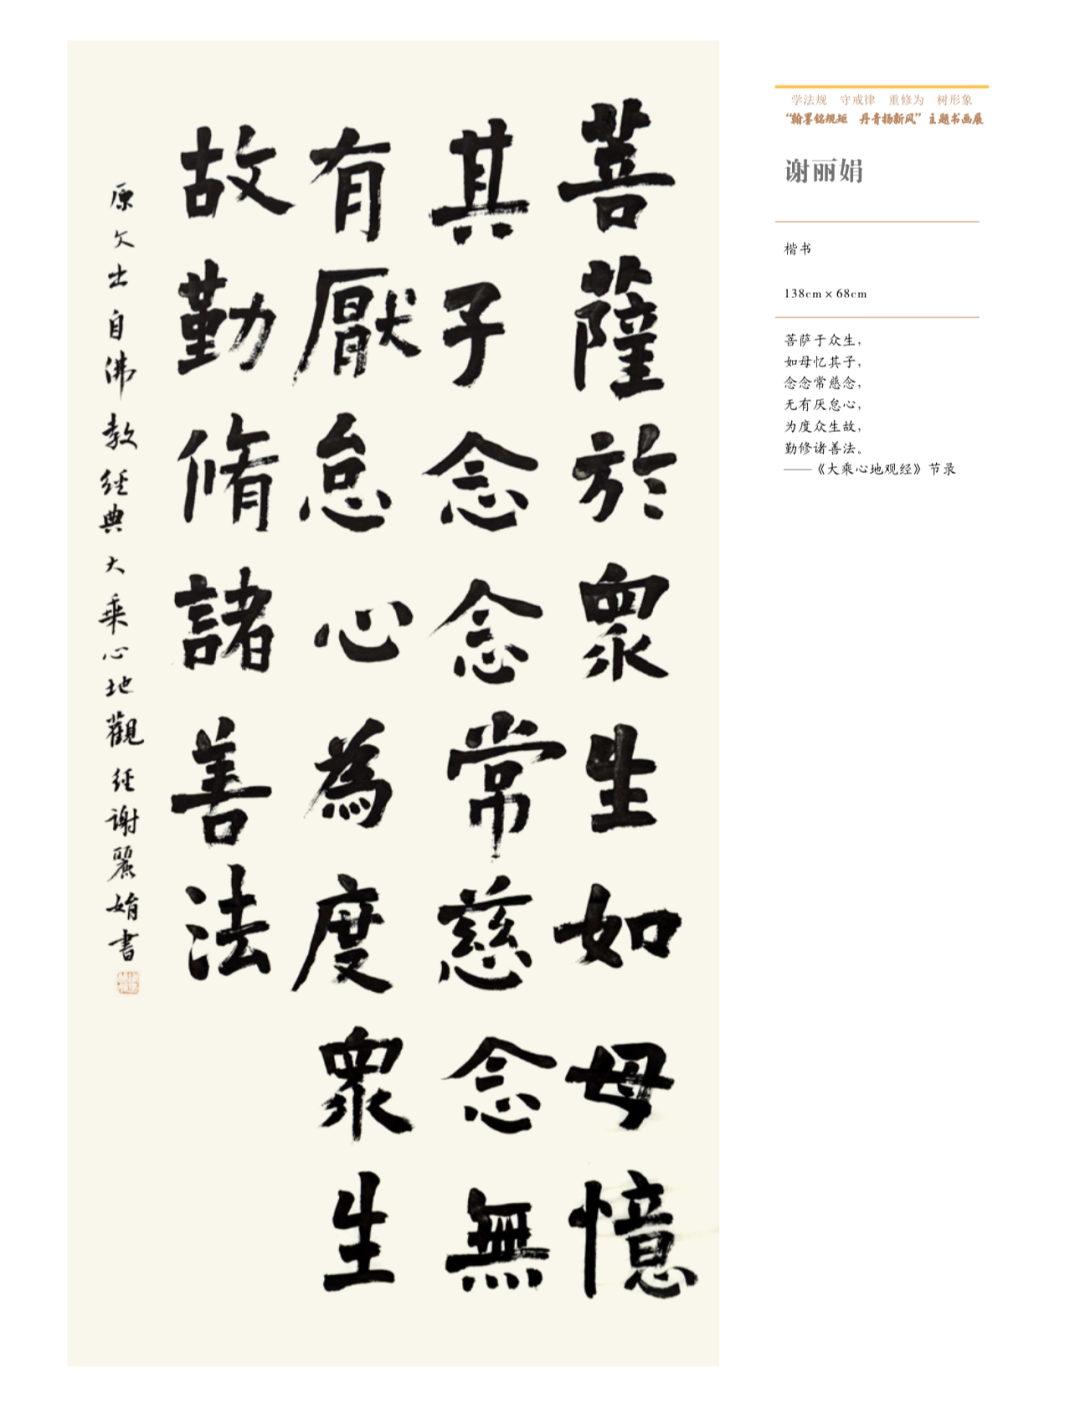 菩薩於眾生如母憶
其子念念常慈念無
有厭怠心為度眾生
故勤脩諸善法
原文出自佛教經典大乘心地觀經謝麗娟書
学法规 守戒律 重修为 树形象
“翰墨铭规矩 丹青扬新风”主题书画展
谢丽娟
楷书
138cm × 68cm
菩萨于众生，
如母忆其子，
念念常慈念，
无有厌怠心，
为度众生故，
勤修诸善法。
——《大乘心地观经》节录